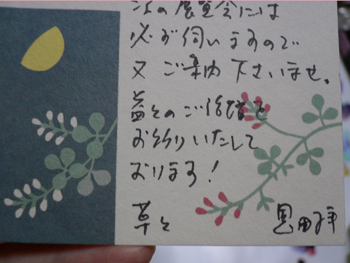 次の展覧会には
必ず伺いますので
又ご案内下さいませ。
益々のご活躍を
お祈りいたして
おります!
草々
恩田